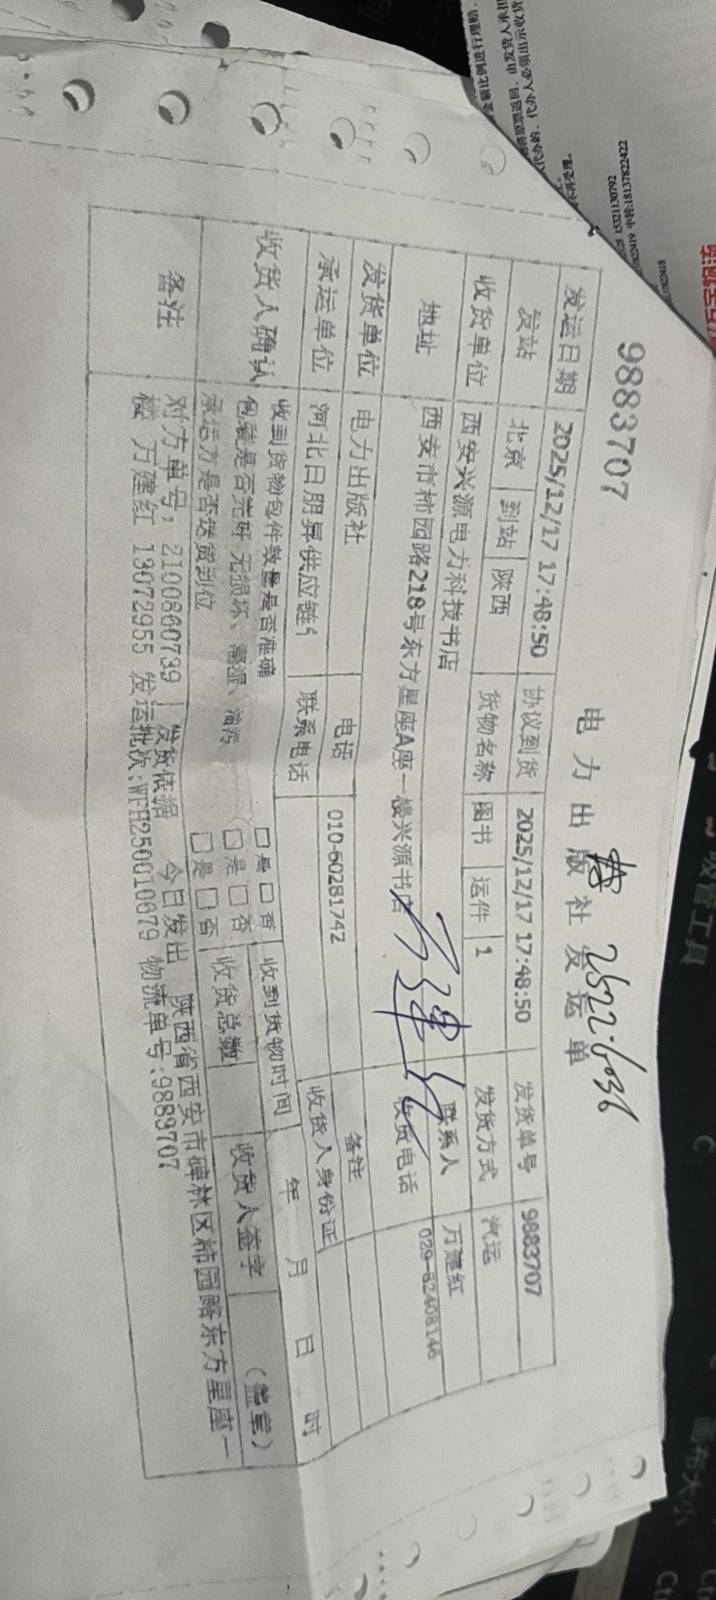 9883707
电力出版社发运单
发运日期 2025/12/17 17:48:50 协议到货 2025/12/17 17:48:50 发货单号 9883707
发站 北京 到站 陕西 货物名称 图书 运件 1 发货方式 汽运
收货单位 西安兴源电力科技书店 联系人 万建红
地址 西安市柿园路218号东方星座A座一楼兴源书店 收货电话 029-82408146
发货单位 电力出版社 电话 010-60281742 备注
承运单位 河北日朋昇供应链 联系电话 收货人身份证
收货人确认 收到货物包件数量是否准确 □是 □否 收到货物时间 年 月 日 时
包装是否完好 无损坏、潮湿、油污 □是 □否 收货总数 收货人签字 (盖章)
承运方是否送货到位 □是 □否
备注 对方单号: 2100860739 发货依据 今日发出 陕西省西安市碑林区柿园路东方星座一
楼 万建红 13072955 发运批次:WFH250010679 物流单号:9883707
万建红
金额比例进行理赔.
15321130792
中转:18137822422